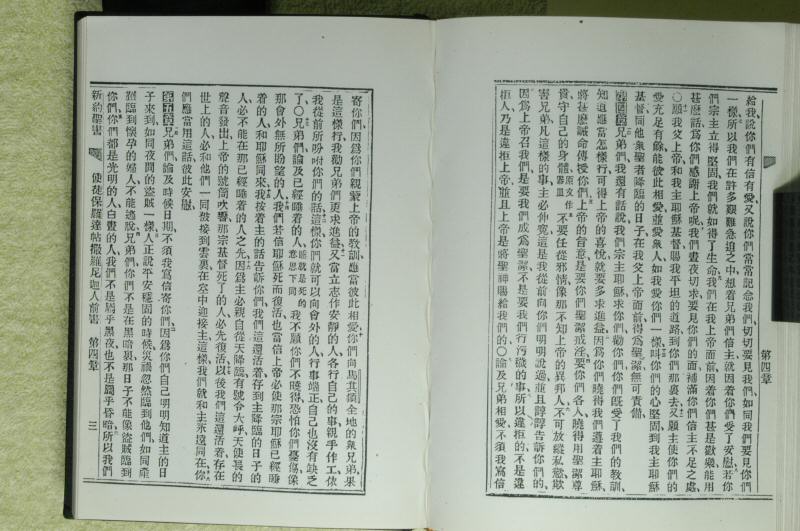 第四章
給我、說你們有信有愛、又說你們常常記念我們、切切要見我們、如同我們要見你們
一樣、所以我們在許多艱難急迫之中、想着兄弟們信主、就因着你們受了安慰、若你
們宗主立得堅固、我們就如得了生命、我們在上帝面前、因着你們甚是歡樂、能用
甚麼話、爲你們感謝上帝呢、我們晝夜切求、要見你們的面、補滿你們信主不足之處、
○願我父上帝、和我主耶穌基督、賜我平坦的道路、到你們那裏去、又願主使你們的
愛充足有餘、能彼此相愛、並愛衆人、如我愛你們一樣、叫你們的心堅固、到我主耶穌
基督、同他衆聖者降臨的日子、在我父上帝面前、得爲聖潔、無可責備、
第四章 兄弟們、我還有話說、我們宗主耶穌求你們、勸你們、你們既受了我們的教訓、
知道應當怎樣行、可得上帝的喜悅、就要多求進益、因爲你們曉得我們遵着主耶穌、
將甚麼誡命傳授你們、上帝的旨意、是要你們聖潔、戒淫、要你們各人曉得用聖潔尊
貴、守自己的身體、原文作器皿 不要任從邪情、像那不知上帝的異邦人、不可放縱私慾、欺
害兄弟、凡這樣的事、主必伸寃、這是我從前向你們明明說過、並且諄諄告訴你們的、
因爲上帝召我們、是要我們成爲聖潔、不是要我們行污穢的事、所以違拒的、不是違
拒人、乃是違拒上帝、並且上帝是將聖神賜給我們的、○論及兄弟相愛、不須我寫信
寄你們、因爲你們親蒙上帝的教訓、應當彼此相愛、你們向馬其頓全地的衆兄弟、果
是這樣行、我勸兄弟們、更求進益、又當立志作安靜的人、各行自己的事、親手作工、依
我從前所吩咐你們的話、這樣、你們就可以向會外的人行事端正、自己也沒有缺乏
了、○兄弟們、論及已經睡着的人、睡就是死的意思下同 我不願你們不曉得、恐怕你們憂傷、像
那會外無所盼望的人、我們若信耶穌死而復活、也當信上帝必使那宗耶穌已經睡
着的人、和耶穌同來、我按着主的話告訴你們、我們這還活着存到主降臨的日子的
人、必不能在那已經睡着的人之先、因爲主必親自從天降臨、有號令大呼、天使長的
聲音發出、上帝的號筒吹響、那宗基督死了的人必先復活、以後我們這還活着存在
世上的人、必和他們一同被接到雲裏、在空中迎接主、這樣、我們就和主永遠同在、你
們應當用這話彼此安慰、
第五章 兄弟們、論及時候日期、不須我寫信寄你們、因爲你們自己明明知道主的日
子來到、如同夜間的盜賊一樣、人正說平安穩固的時候、災禍忽然臨到他們、如同產
難臨到懷孕的婦人、不能逃脫、兄弟們、你們不是在黑暗裏、那日子不能像盜賊臨到
你們、你們都是光明的人、白晝的人、我們不是屬乎黑夜、也不是屬乎昏暗、所以我們
新約聖書 使徒保羅達帖撒羅尼迦人前書 第四章 三